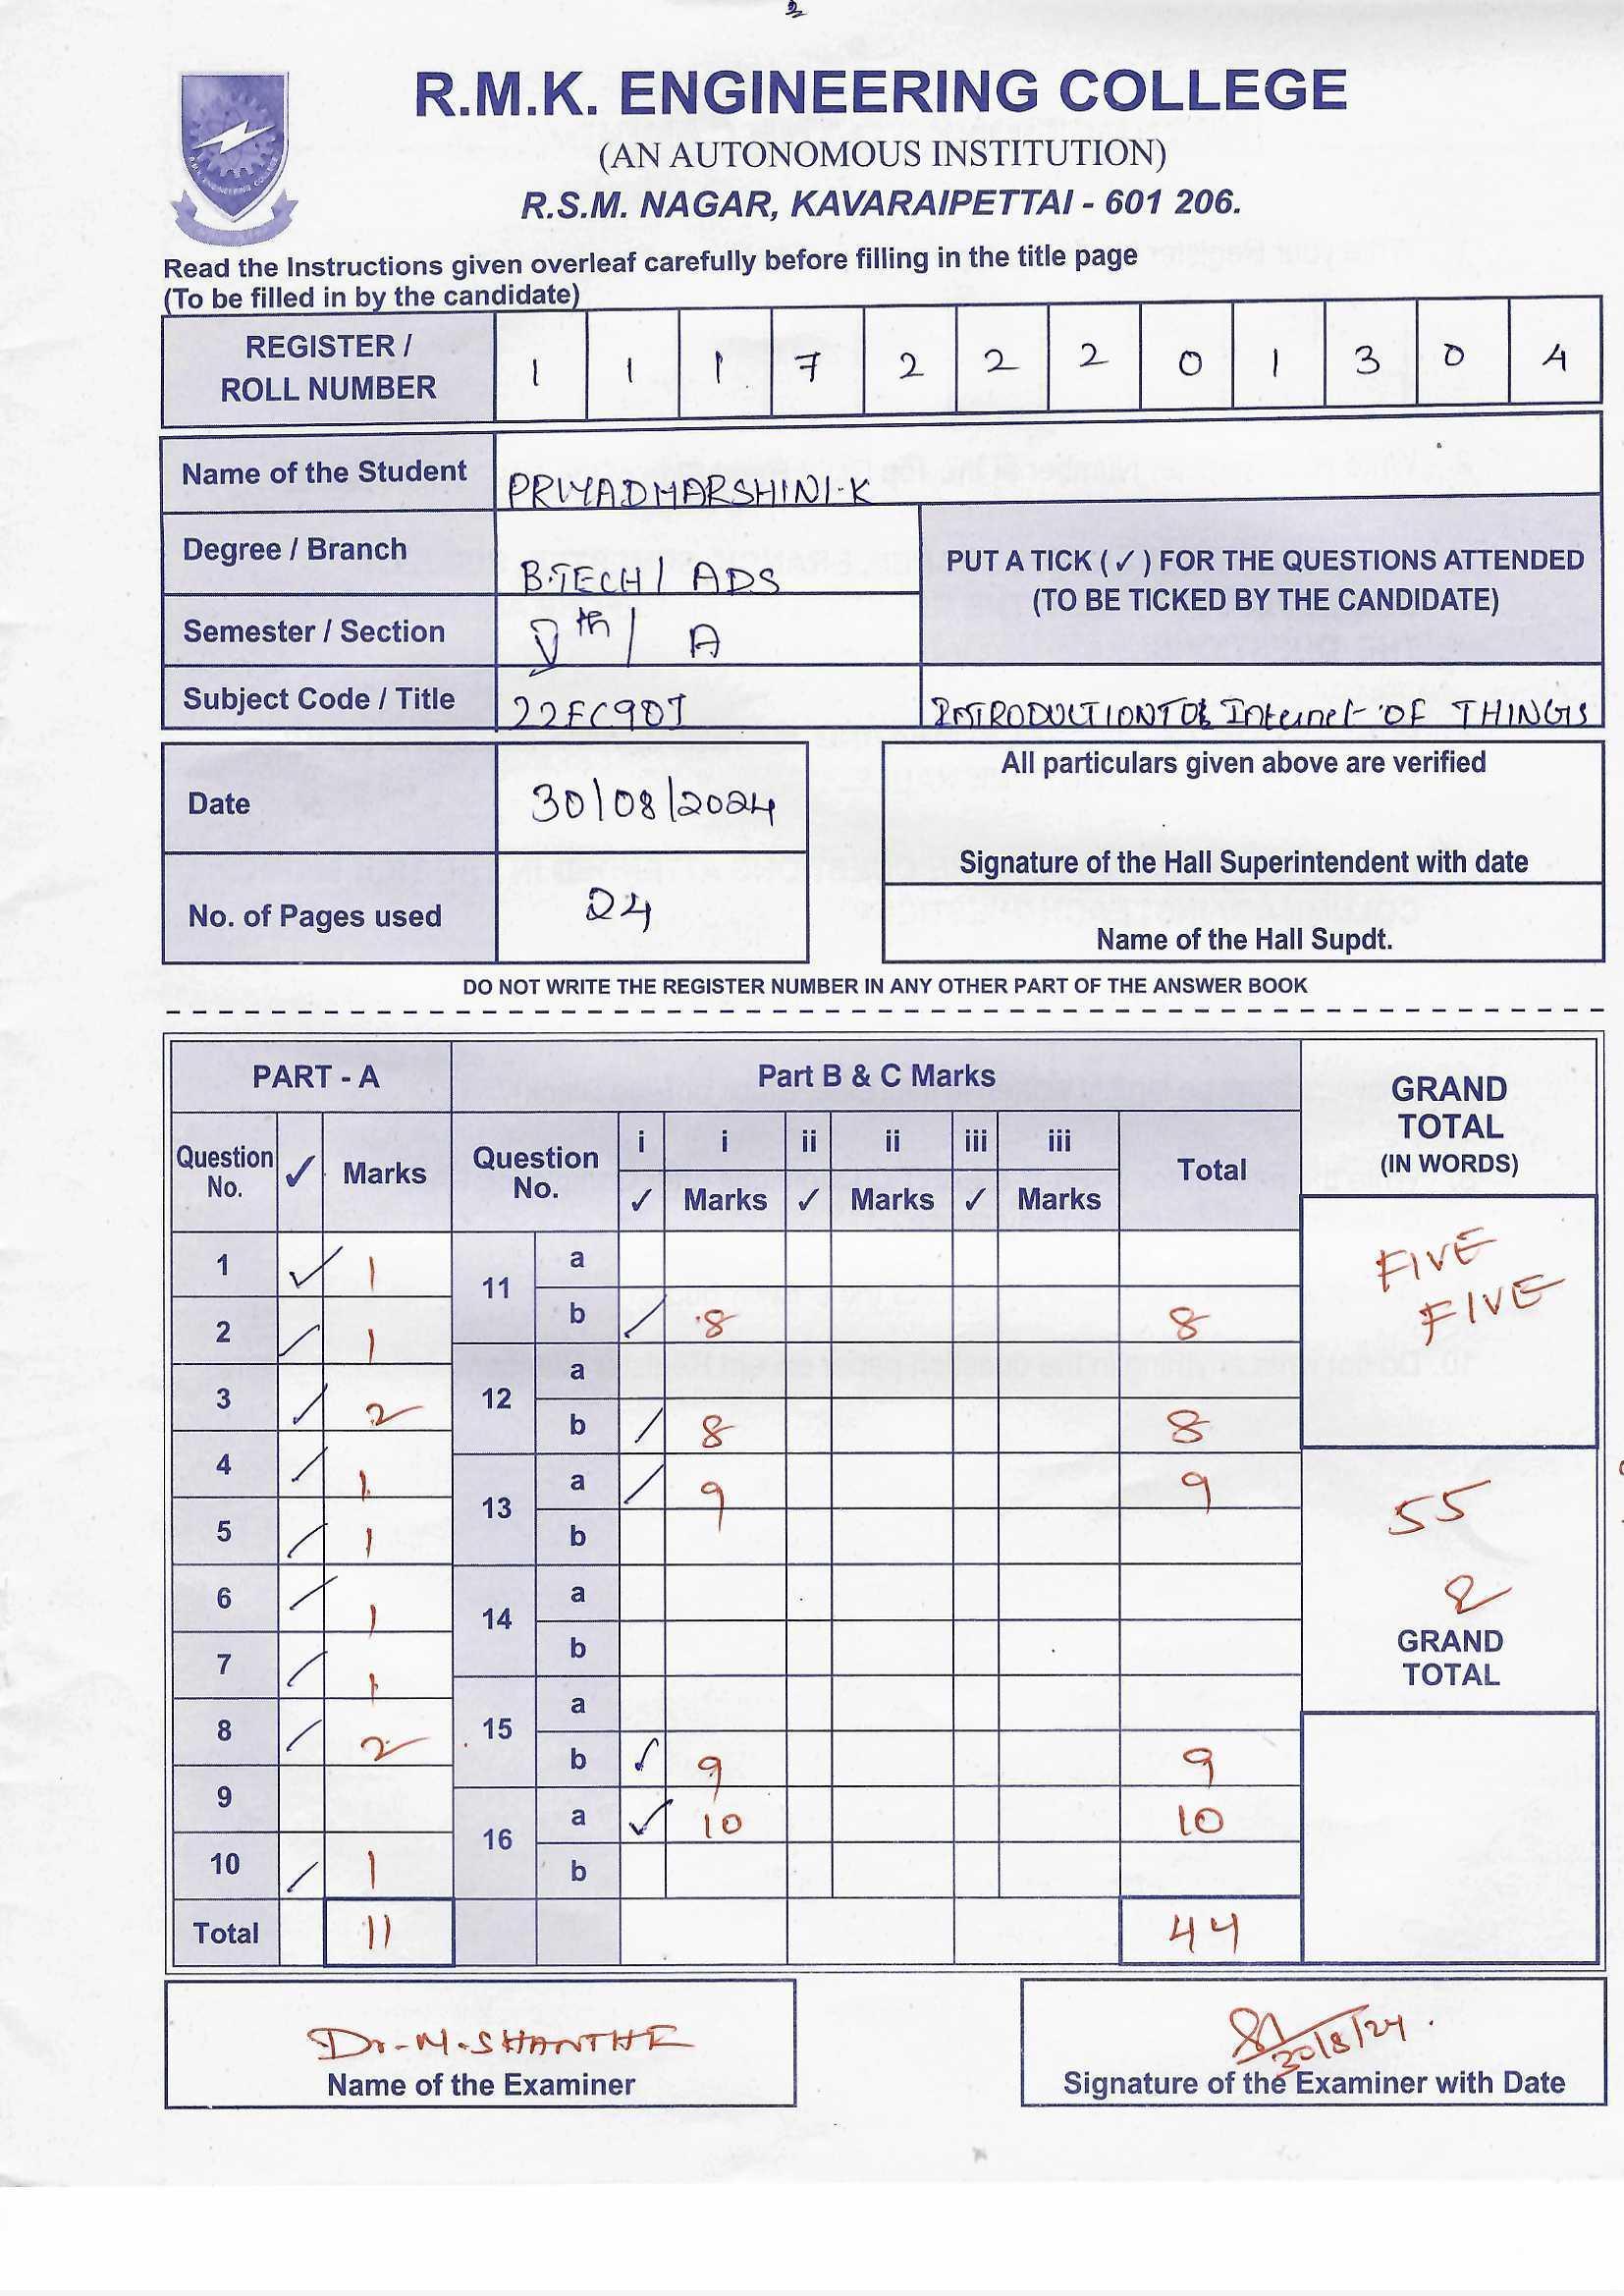 R.M.K. ENGINEERING COLLEGE
(AN AUTONOMOUS INSTITUTION)
R.S.M. NAGAR, KAVARAIPETTAI - 601 206.
Read the Instructions given overleaf carefully before filling in the title page
(To be filled in by the candidate)
REGISTER / ROLL NUMBER 1 1 1 7 2 2 2 0 1 3 0 4
Name of the Student PRIYADHARSHINI.K
Degree / Branch B.TECH / ADS
PUT A TICK ( ✓ ) FOR THE QUESTIONS ATTENDED
(TO BE TICKED BY THE CANDIDATE)
Semester / Section Vth / A
Subject Code / Title INTRODUCTION TO Internet OF THINGS
Date 30/08/2024
All particulars given above are verified
Signature of the Hall Superintendent with date
No. of Pages used 24
Name of the Hall Supdt.
DO NOT WRITE THE REGISTER NUMBER IN ANY OTHER PART OF THE ANSWER BOOK
PART - A
Question No. ✓ Marks
1 ✓ 1
2 ✓ 1
3 ✓ 2
4 ✓ 1
5 ✓ 1
6 ✓ 1
7 ✓ 1
8 ✓ 2
9
10 ✓ 1
Total 11
Part B & C Marks
Question No. i ✓ i Marks ii ✓ ii Marks iii ✓ iii Marks Total
11 a
b ✓ 8 8
12 a
b ✓ 8 8
13 a ✓ 9 9
b
14 a
b
15 a
b ✓ 9 9
16 a ✓ 10 10
b
44
GRAND
TOTAL
(IN WORDS)
FIVE
FIVE
55
GRAND
TOTAL
Dr. M. SHANTHI
Name of the Examiner
30/8/24.
Signature of the Examiner with Date